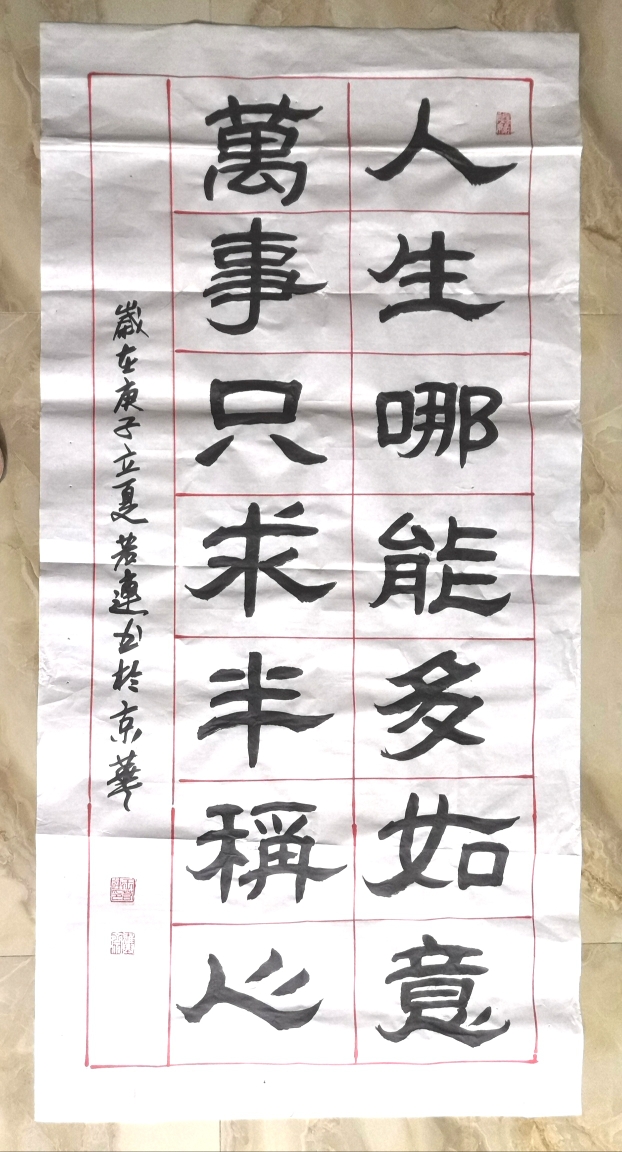 人生哪能多如意
萬事只求半稱心
歲在庚子立夏若連书於京華